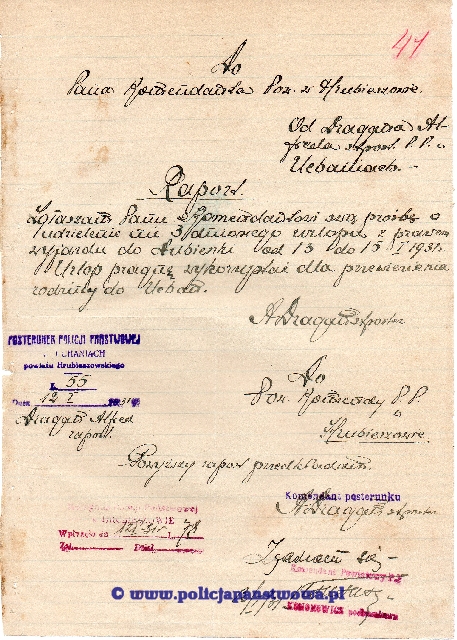 41
Do
Pana Komendanta Pow. w Hrubieszowie.
Od Dragana Al-
freda st. post. P.P. w
Uchaniach.
Raport.
Zgłaszam Panu Komendantowi swą prośbę o
udzielenie mi 3 dniowego urlopu z prawem
wyjazdu do Dubienki od 13 do 15 I 1931.
Urlop pragnę wykorzystać dla przewiezienia
rodziny do Uchań.
A Dragan st. poster.
POSTERUNEK POLICJI PAŃSTWOWEJ
UCHANIACH
powiatu Hrubieszowskiego
L. 55
Dnia 12 I 1931
Dragan Alfred
raport.
Do
Pow. Komendy P.P.
w
Hrubieszowie.
Powyższy raport przedkładam.
Komendant posterunku
A Dragan st. poster
Wpłynęło dn. 12
L. 78
Zał. Dział
Zgadzam się
Komendant Powiatowy P.P.
© www.policjapanstwowa.pl
KONONOWICZ